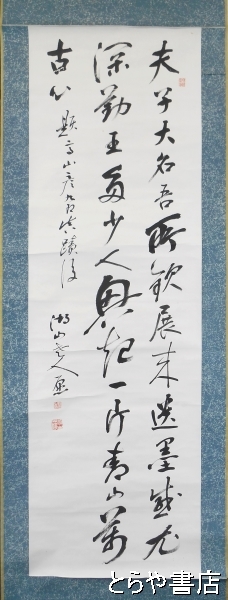 夫子大名吾所欽展来遺墨感尤
深勤王多少人興起一片青山萬
古心
題高山彦九郎真蹟後
湖山老人愿
とらや書店